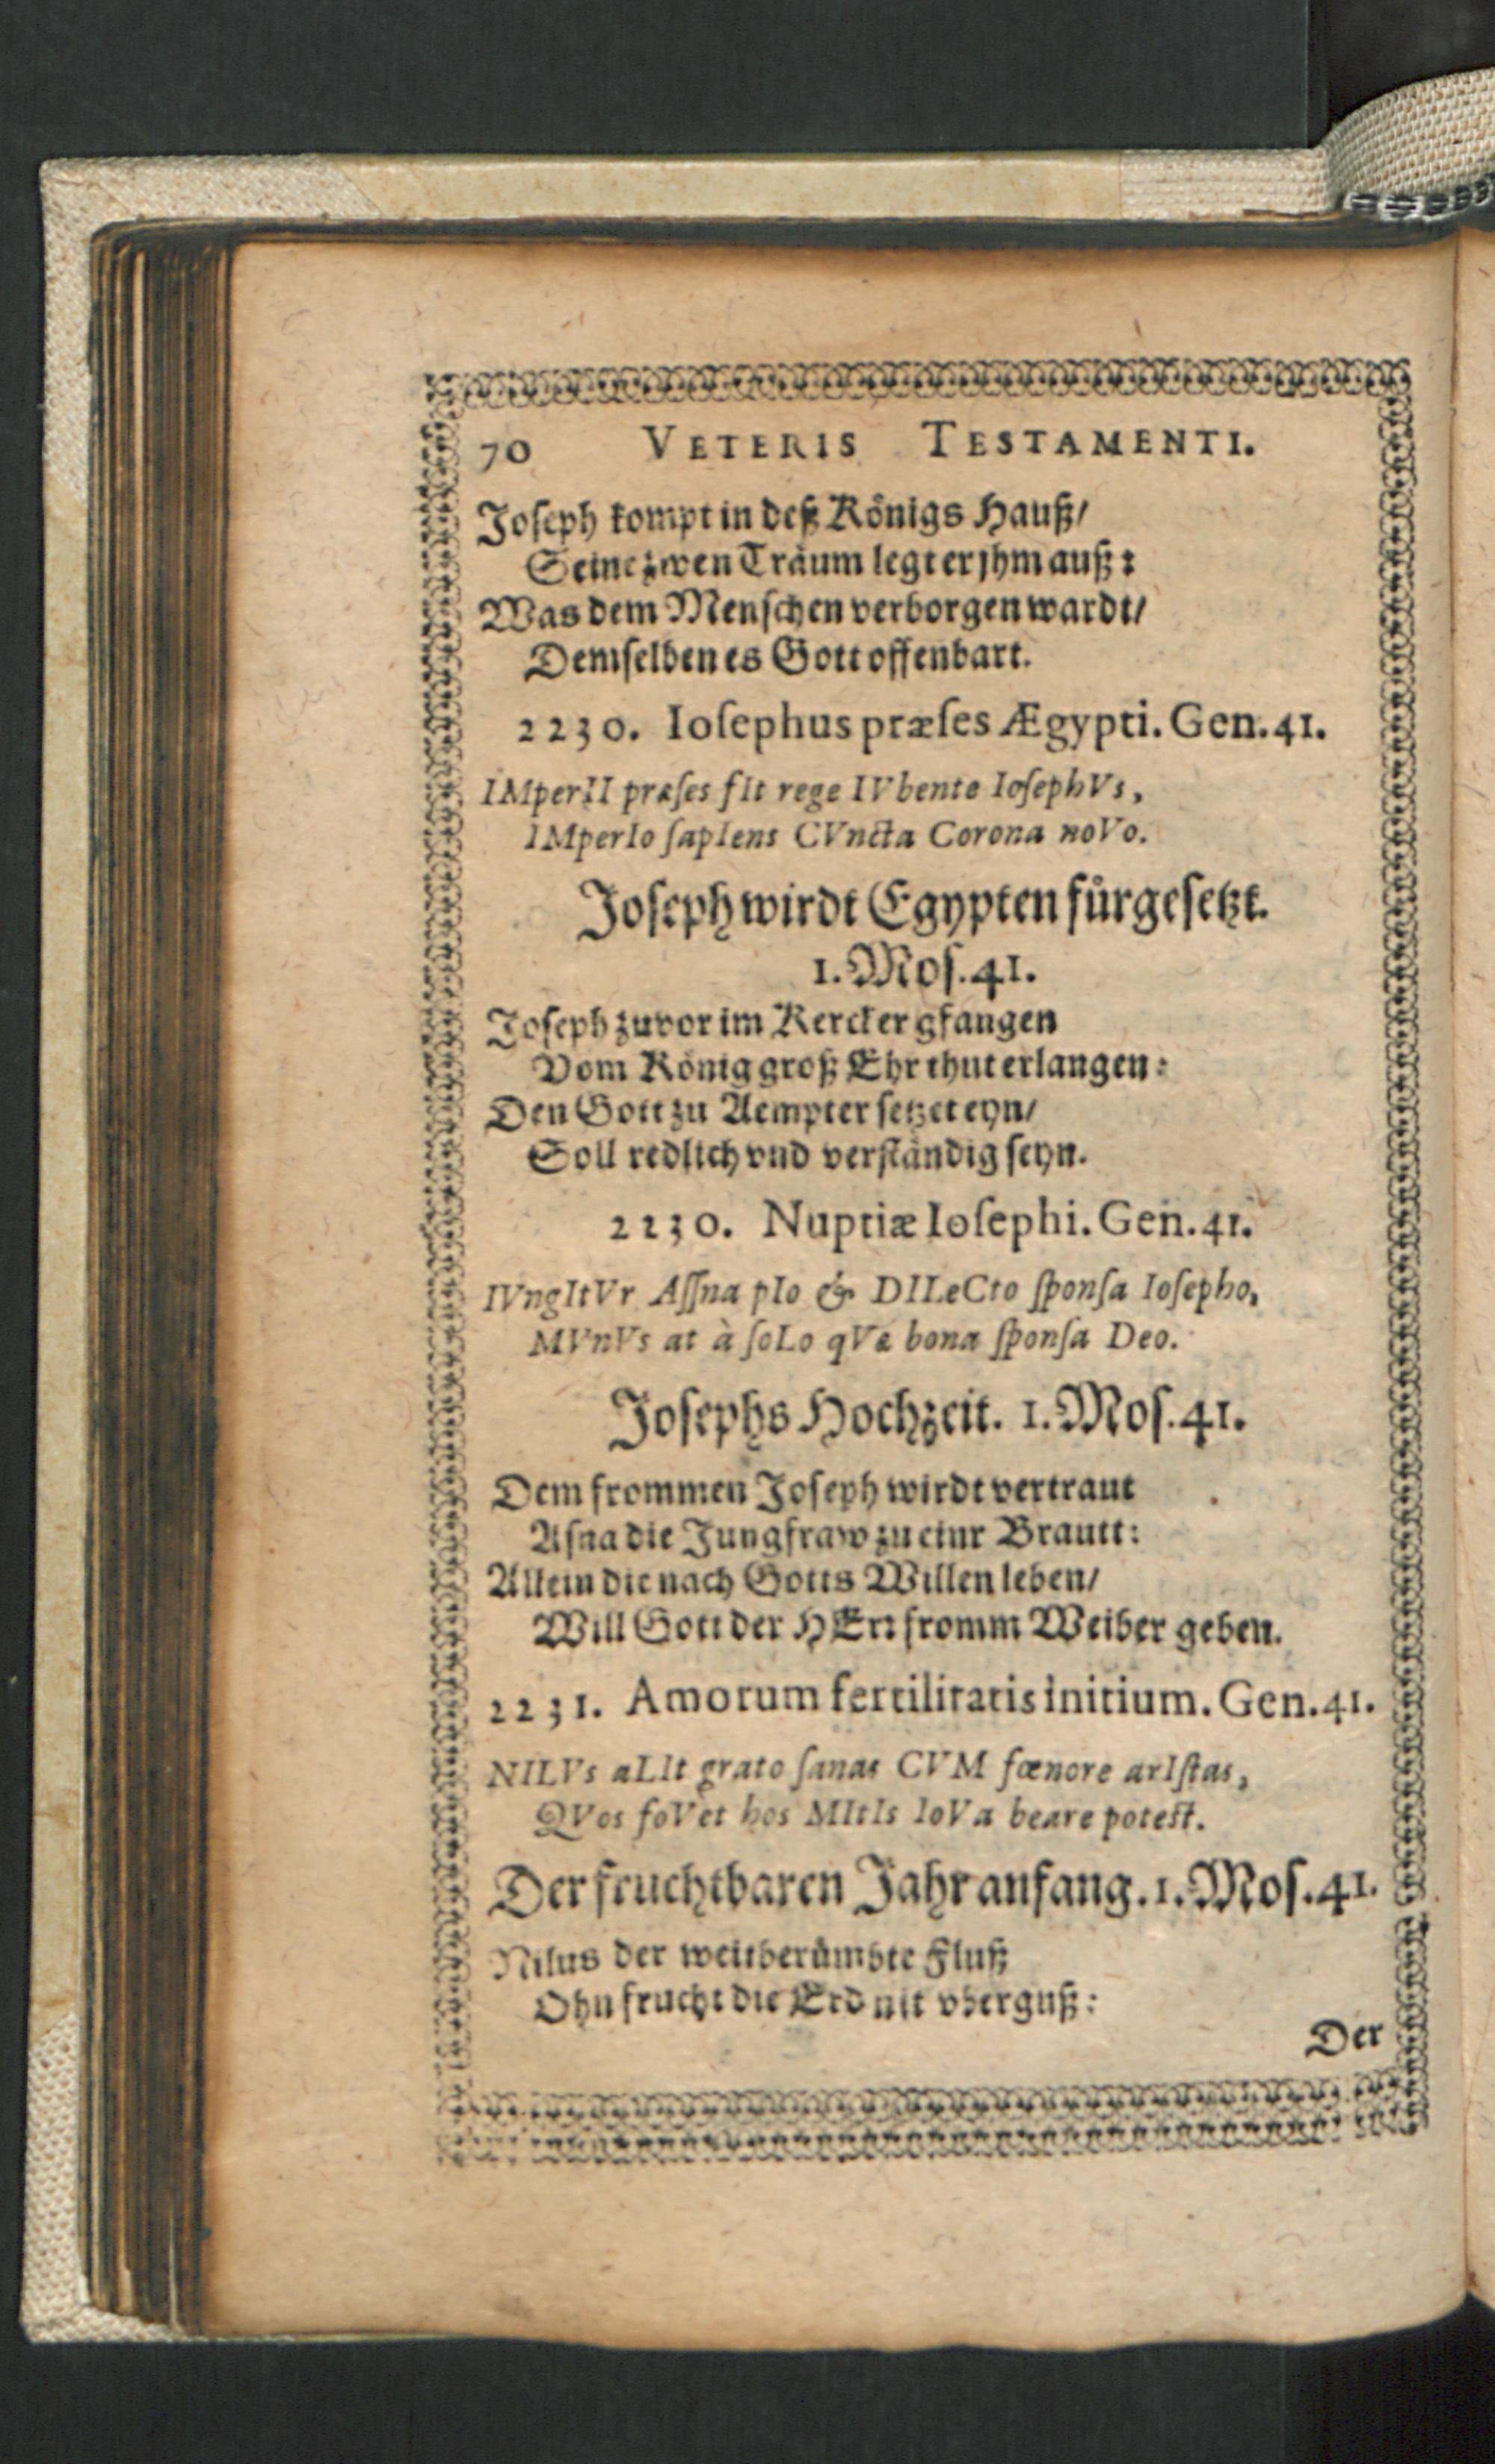 70 VETERIS TESTAMENTI.
Joſeph kompt in deß Königs Hauß/
Seine zwen Träum legt er jhm auß:
Was dem Menſchen verborgen wardt/
Demſelben es Gott offenbart.
2230. Ioſephus præſes Ægypti. Gen. 41.
IMperII præſes fIt rege IVbente IoſephVs,
IMperIo ſapIens CVncta Corona noVo.
Joſeph wirdt Egypten fürgeſetzt.
1. Moſ. 41.
Joſeph zuvor im Kercker gfangen
Vom König groß Ehr thut erlangen:
Den Gott zu Aempter ſetzet eyn/
Soll redlich vnd verſtändig ſeyn.
2230. Nuptiæ Ioſephi. Gen. 41.
IVngItVr Aſſna pIo & DILeCto ſponſa Ioſepho,
MVnVs at à ſoLo qVæ bona ſponſa Deo.
Joſephs Hochzeit. 1. Moſ. 41.
Dem frommen Joſeph wirdt vertraut
Aſna die Jungfraw zu einr Brautt:
Allein die nach Gotts Willen leben/
Will Gott der HErr fromm Weiber geben.
2231. Amorum fertilitatis initium. Gen. 41.
NILVs aLIt grato ſanas CVM fœnore arIſtas,
QVos foVet hos MItIs IoVa beare poteſt.
Der fruchtbaren Jahr anfang. 1. Moſ. 41.
Nilus der weitberümbte Fluß
Ohn frucht die Erd nit vberguß:
Der